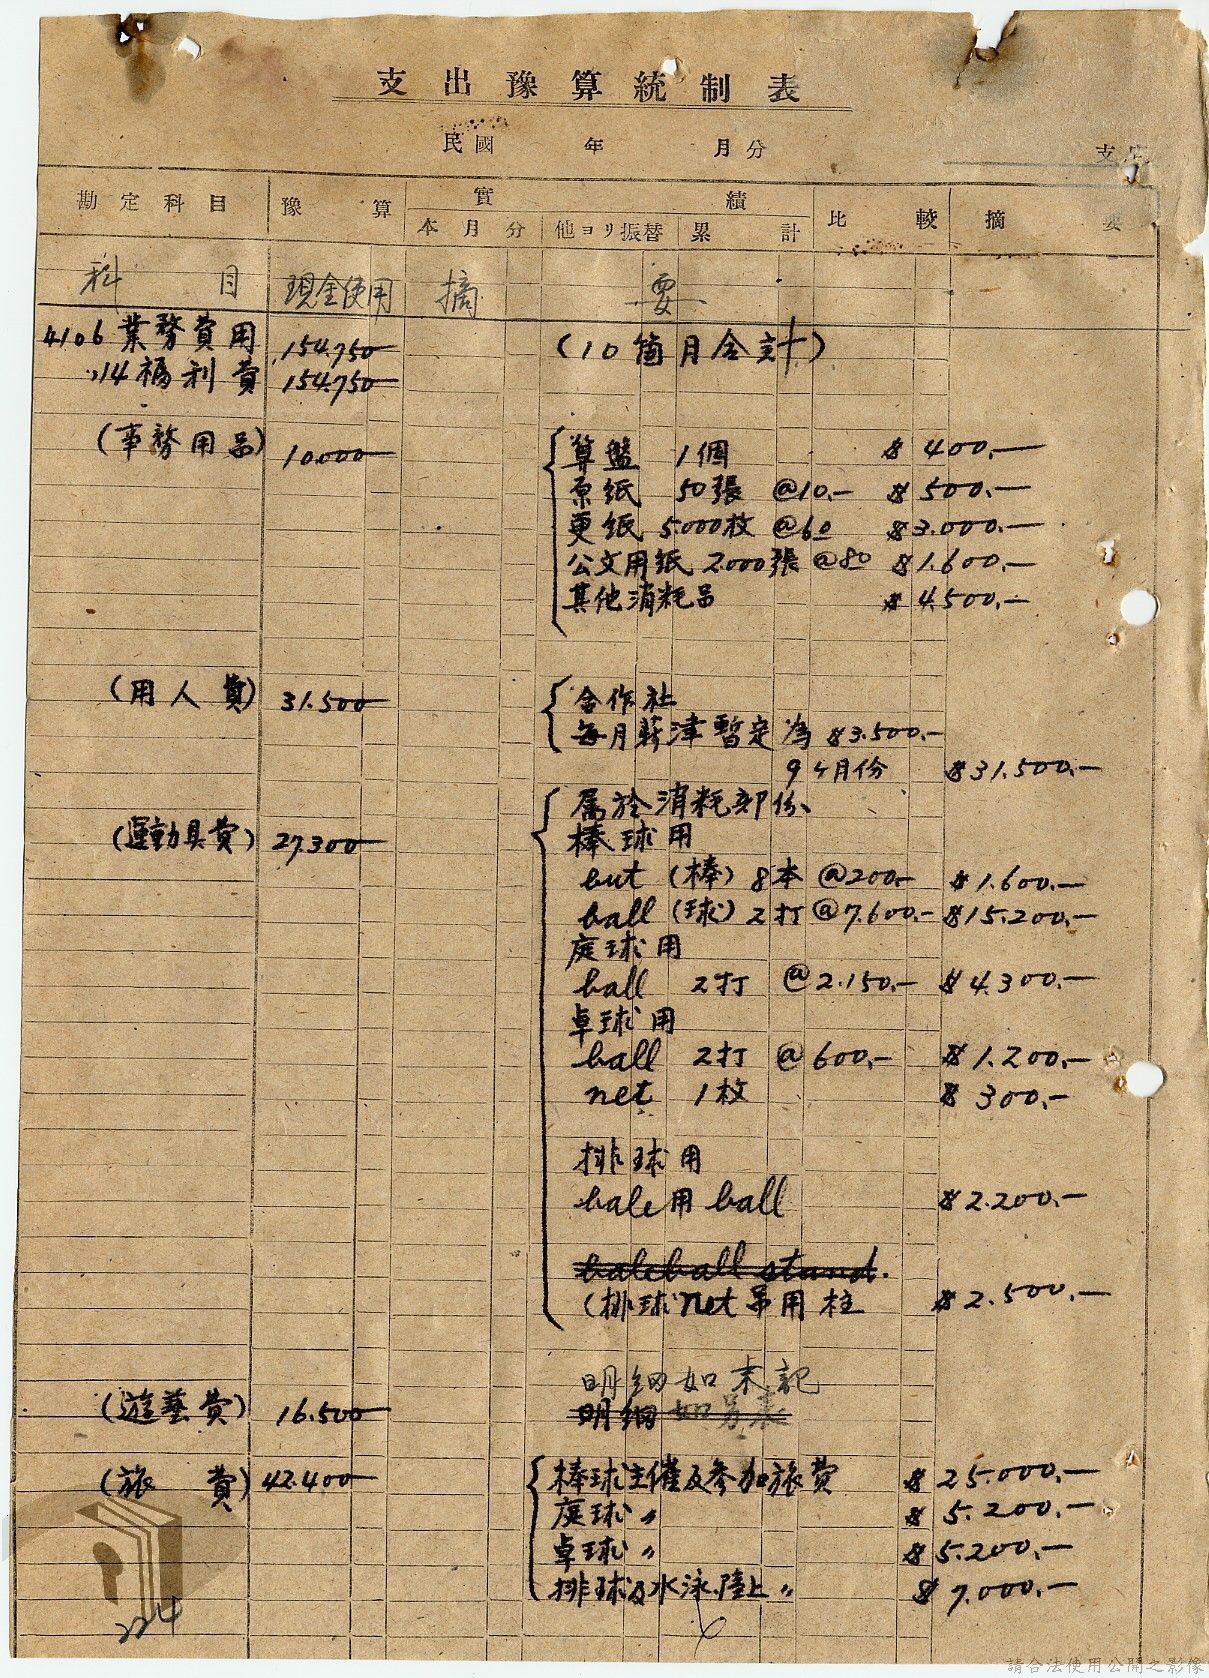 支出豫算統制表
民國 年 月分
支
勘定科目 豫算 實績 比較 摘要
本月分 他ヨリ振替 累計
科目 現金使用 摘要
4106 業務費用 154.750 (10箇月合計)
〃14 福利費 154.750
(事務用品) 10.000 算盤 1個 $ 400.—
原紙 50張 @10.— $ 500.—
更紙 5.000枚 @60 $3.000.—
公文用紙 2.000張 @80 $1.600.—
其他消耗品 $ 4.500.—
(用人費) 31.500 合作社
每月薪津暫定為 $3.500.—
9ヶ月份 $31.500.—
属於消耗部份、
(運動具費) 27.300 棒球用
but (棒) 8本 @200.— $1.600.—
ball (球) 2打 @7.600.— $15.200.—
庭球用
ball 2打 @2.150.— $4.300.—
卓球用
ball 2打 @600.— $1.200.—
net 1枚 $ 300.—
排球用
bale用 ball $2.200.—
baleball stand.
(排球net吊用柱 $2.500.—
明細如末記
(遊藝費) 16.500 明細如另表
(旅費) 42.400 棒球主催及参加旅費 $ 25.000.—
庭球 〃 $ 5.200.—
卓球 〃 $ 5.200.—
排球及水泳.陸上 〃 $ 7.000.—
224
請合法使用公開之影像